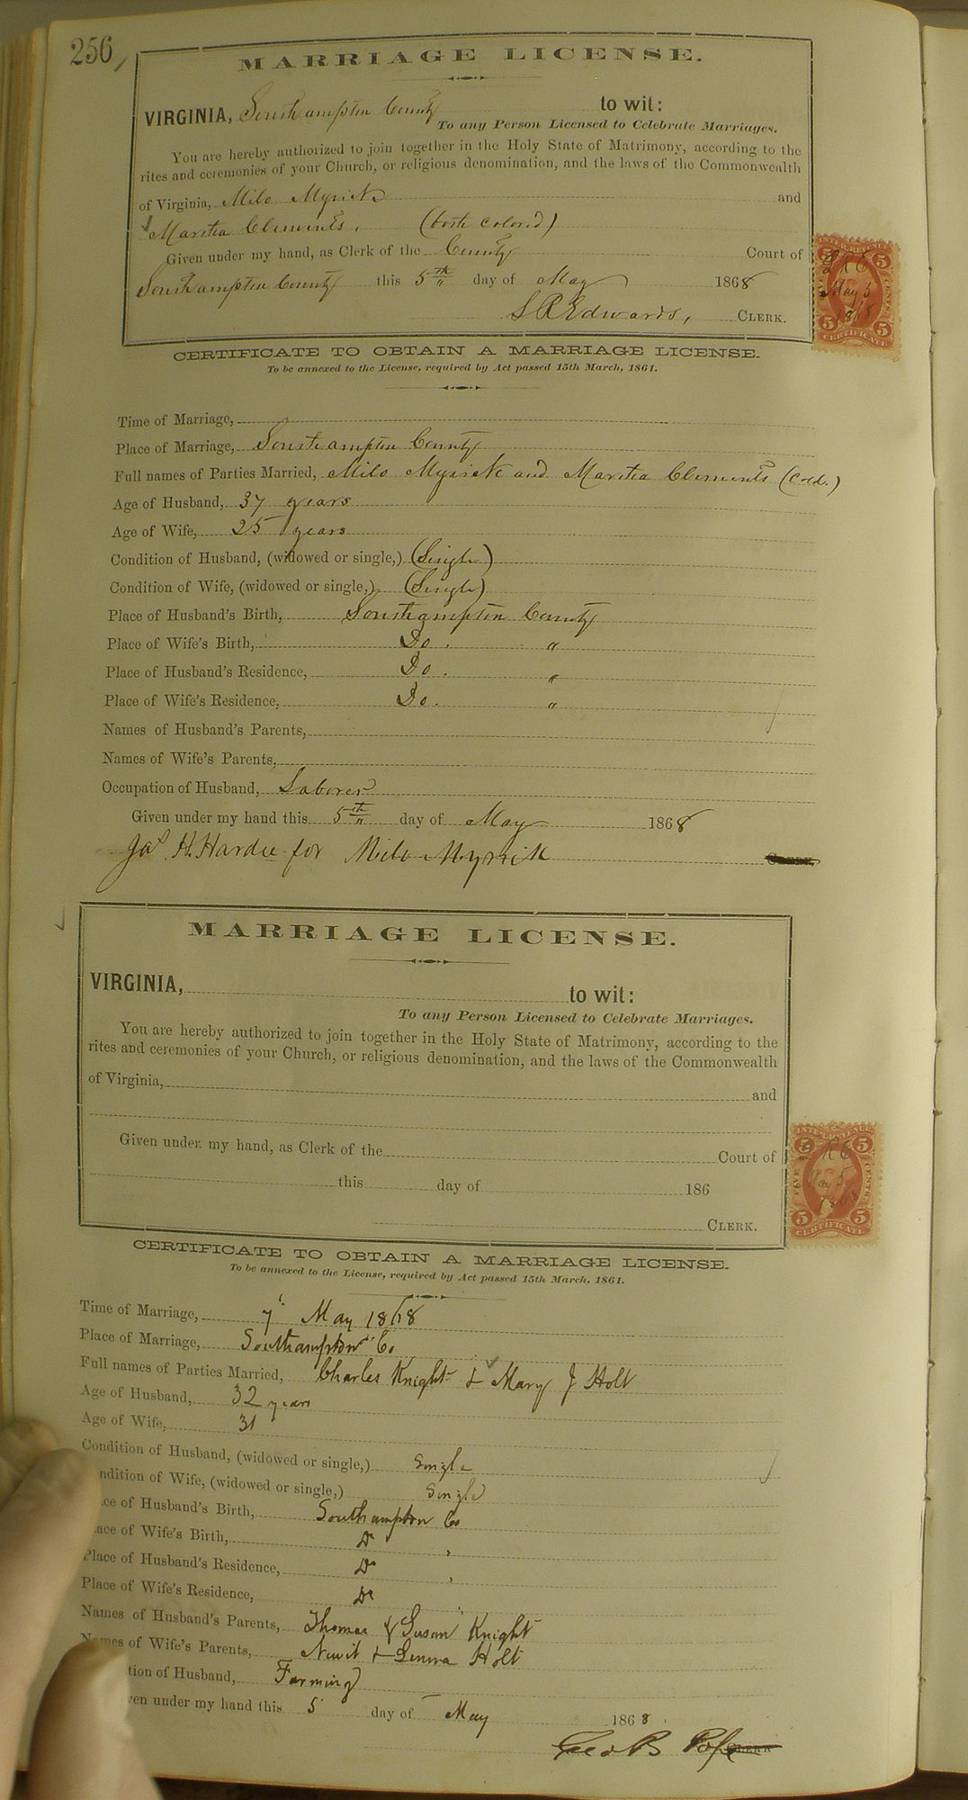 256
MARRIAGE LICENSE.
VIRGINIA, Southampton County to wit:
To any Person Licensed to Celebrate Marriages.
You are hereby authorized to join together in the Holy State of Matrimony, according to the
rites and ceremonies of your Church, or religious denomination, and the laws of the Commonwealth
of Virginia, Milo Myrick and
Martha Clements, (both colored)
Given under my hand, as Clerk of the County Court of
Southampton County this 5th day of May 1868
L R Edwards, CLERK.
INTER. REVENUE
5 5
L R E
May 5
1868
5 5
CERTIFICATE
CERTIFICATE TO OBTAIN A MARRIAGE LICENSE.
To be annexed to the License, required by Act passed 15th March, 1861.
Time of Marriage,
Place of Marriage, Southampton County
Full names of Parties Married, Milo Myrick and Martha Clements (Cold.)
Age of Husband, 37 years
Age of Wife, 25 years
Condition of Husband, (widowed or single,) (Single)
Condition of Wife, (widowed or single,) (Single)
Place of Husband's Birth, Southampton County
Place of Wife's Birth, Do. "
Place of Husband's Residence, Do. "
Place of Wife's Residence, Do. "
Names of Husband's Parents,
Names of Wife's Parents,
Occupation of Husband, Laborer
Given under my hand this 5th day of May 1868
Jas H. Hardee for Milo Myrick CLERK.
MARRIAGE LICENSE.
VIRGINIA, to wit:
To any Person Licensed to Celebrate Marriages.
You are hereby authorized to join together in the Holy State of Matrimony, according to the
rites and ceremonies of your Church, or religious denomination, and the laws of the Commonwealth
of Virginia, and
Given under my hand, as Clerk of the Court of
this day of 186
CLERK.
INTER. REVENUE
5 5
FIVE CENTS
May 5
5 5
CERTIFICATE
CERTIFICATE TO OBTAIN A MARRIAGE LICENSE.
To be annexed to the License, required by Act passed 15th March, 1861.
Time of Marriage, 7 May 1868
Place of Marriage, Southampton Co
Full names of Parties Married, Charles Knight & Mary J Holt
Age of Husband, 32 years
Age of Wife, 31
Condition of Husband, (widowed or single,) Single
ndition of Wife, (widowed or single,) Single
ce of Husband's Birth, Southampton Co
ace of Wife's Birth, Do "
Place of Husband's Residence, Do "
Place of Wife's Residence, Do "
Names of Husband's Parents, Thomas & Susan Knight
Names of Wife's Parents, Newit & Holt
tion of Husband, Farming
en under my hand this 5 day of May 1868.
Geo B Pope CLERK